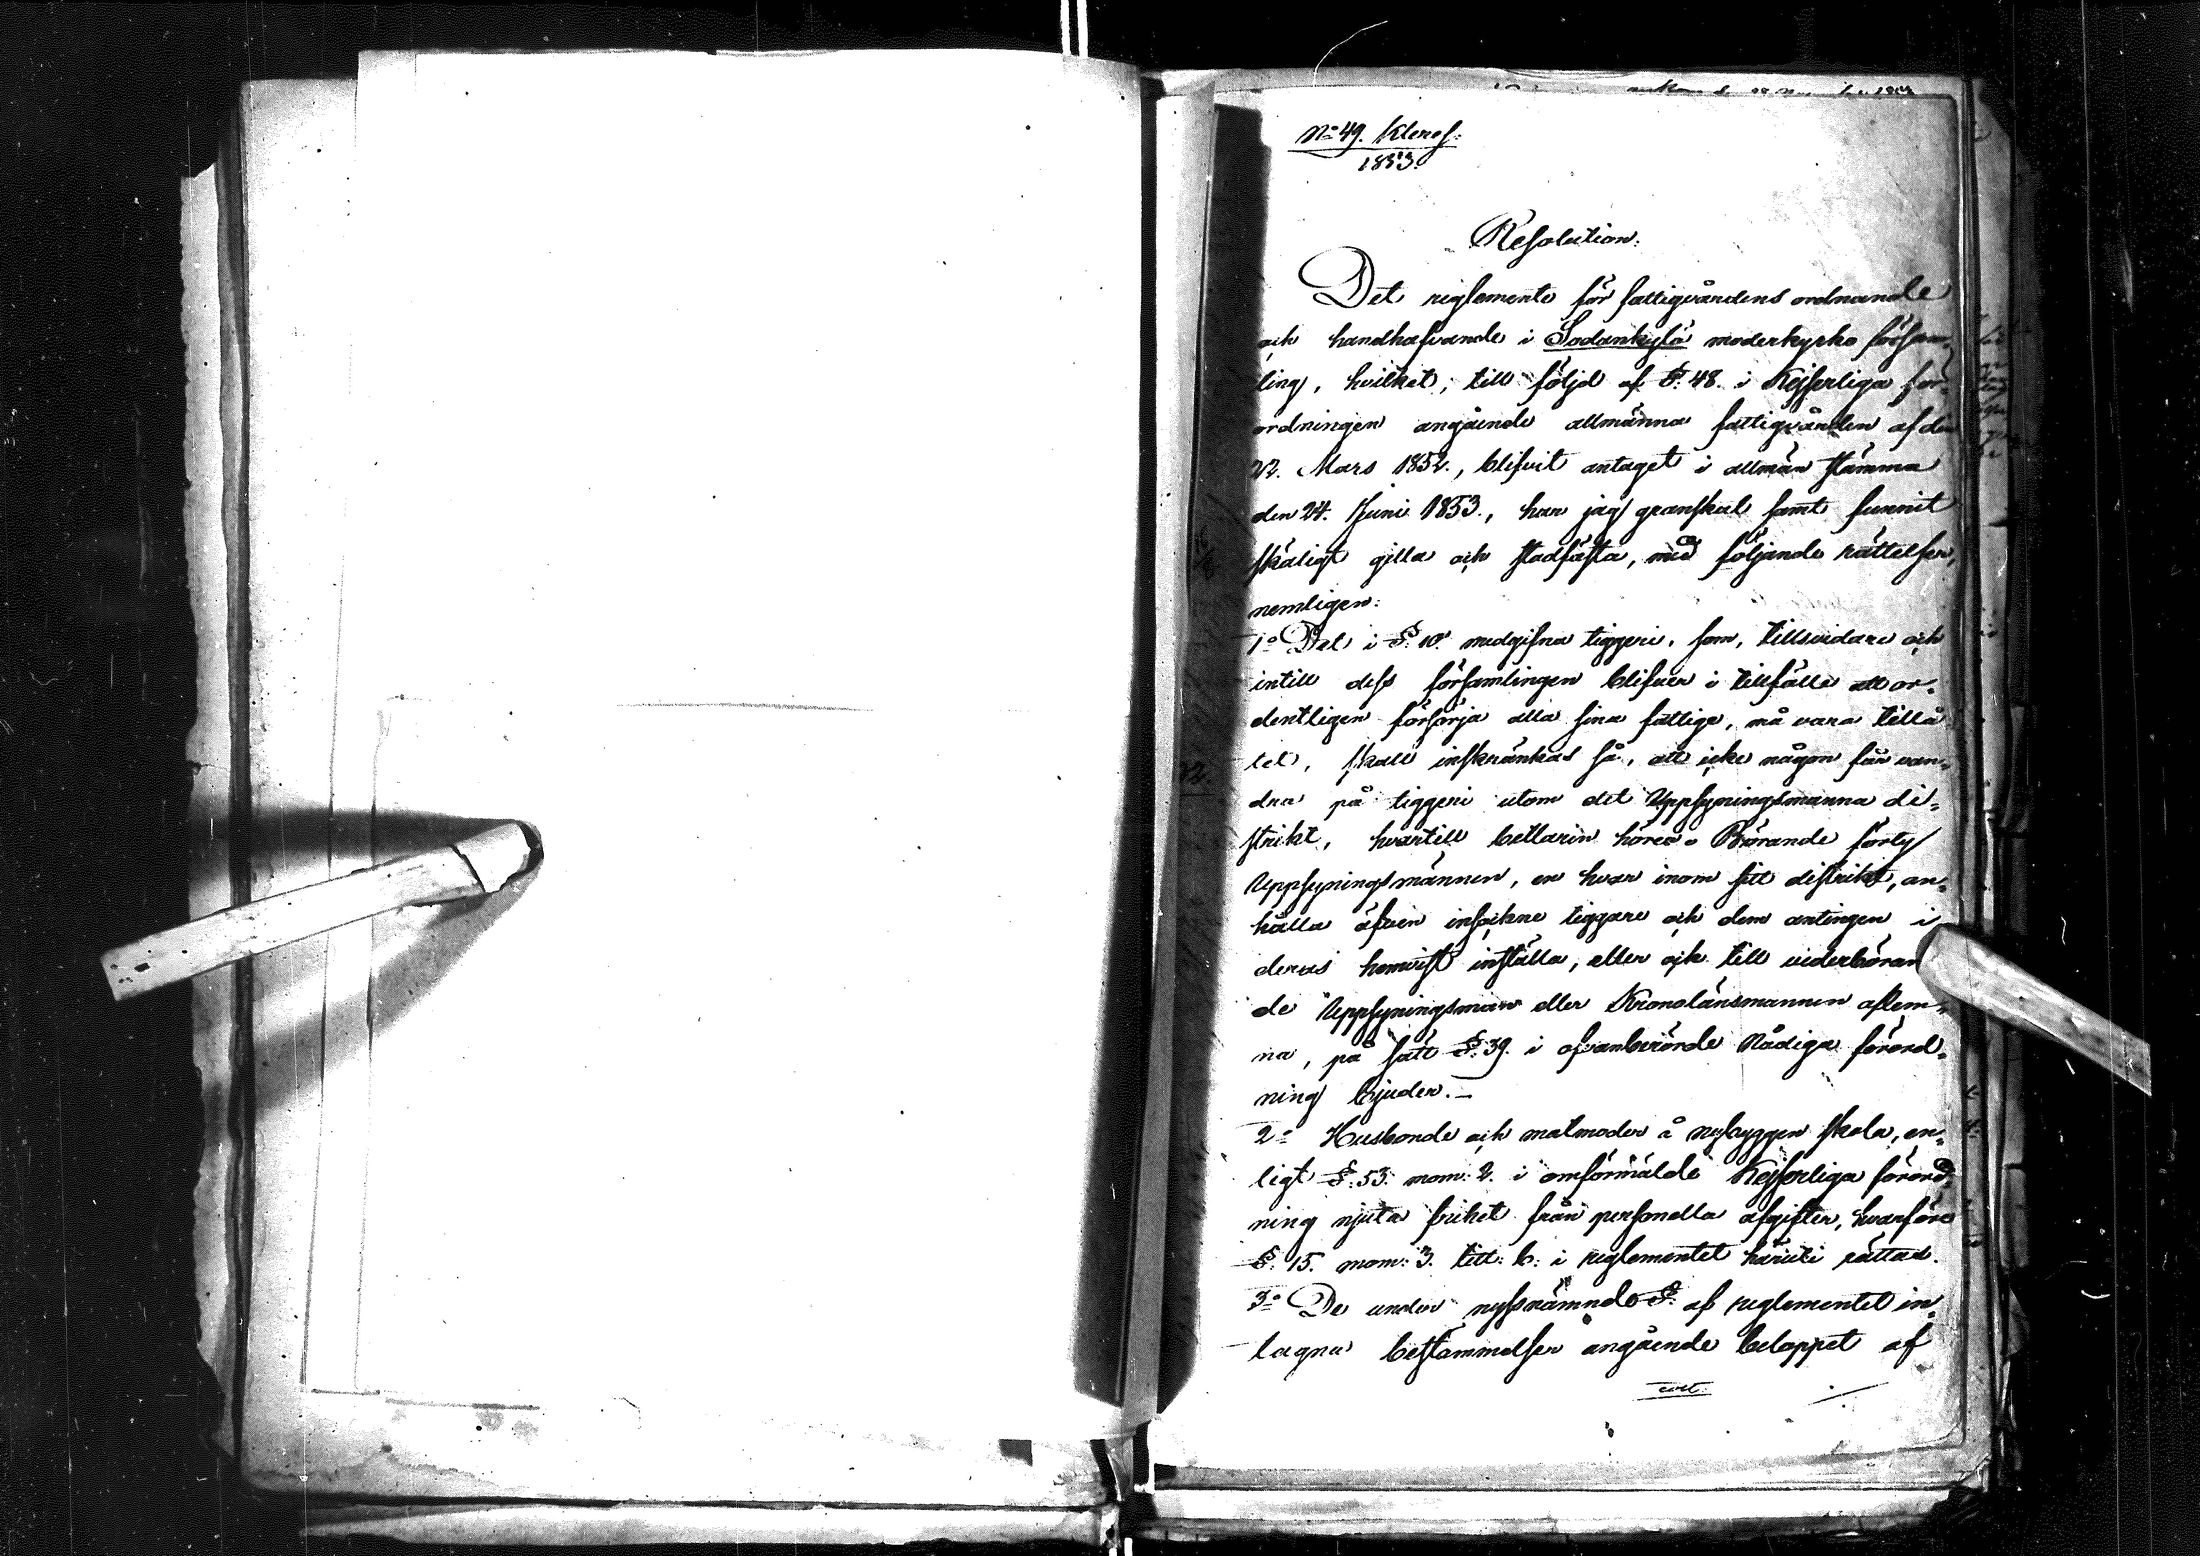 No 49. Kleresi:
1853.
Resolution.
Det reglemente för fattigvårdens ordnande
och handhafvande i Sodankylä moderkyrko försam-
ling, hvilket, till följd af §. 48. i Kejserliga för-
ordningen angående allmänna fattigvården af den
22. Mars 1852., blifvit antaget i allmän stämma
den 24. Juni 1853., har jag granskat samt funnit
skäligt gilla och stadfästa, med följande rättelser,
nemligen:
1o Det i §. 10. medgifna tiggeri, som, tillsvidare och
intill dess församlingen blifver i tillfälle att or-
dentligen försörja alla sina fattige, må vara tillå
tet, skall inskränkas så, att icke någon får van-
dra på tiggeri utom det Uppsyningsmanna di-
strikt, hvartill bettlaren hörer. Börande förty
Uppsyningsmännen, en hvar inom sitt distrikt, an-
hålla äfven insockne tiggare och dem antingen i
deras hemvist inställa, eller ock till vederböran
de Uppsyningsman eller Kronolänsmannen aflem-
na, på sätt §. 39. i ofvanberörde Nådiga förord-
ning bjuder. —
2o Husbonde och matmoder å nybyggen skola, en-
ligt §. 53. mom: 2. i omförmälde Kejserliga förord-
ning njuta frihet från personella afgifter, hvarföre
§. 15. mom: 3. litt: b: i reglementet häruti rättas.
3o De under nyssnämnde §. af reglementet in-
tagna bestämmelser angående beloppet af